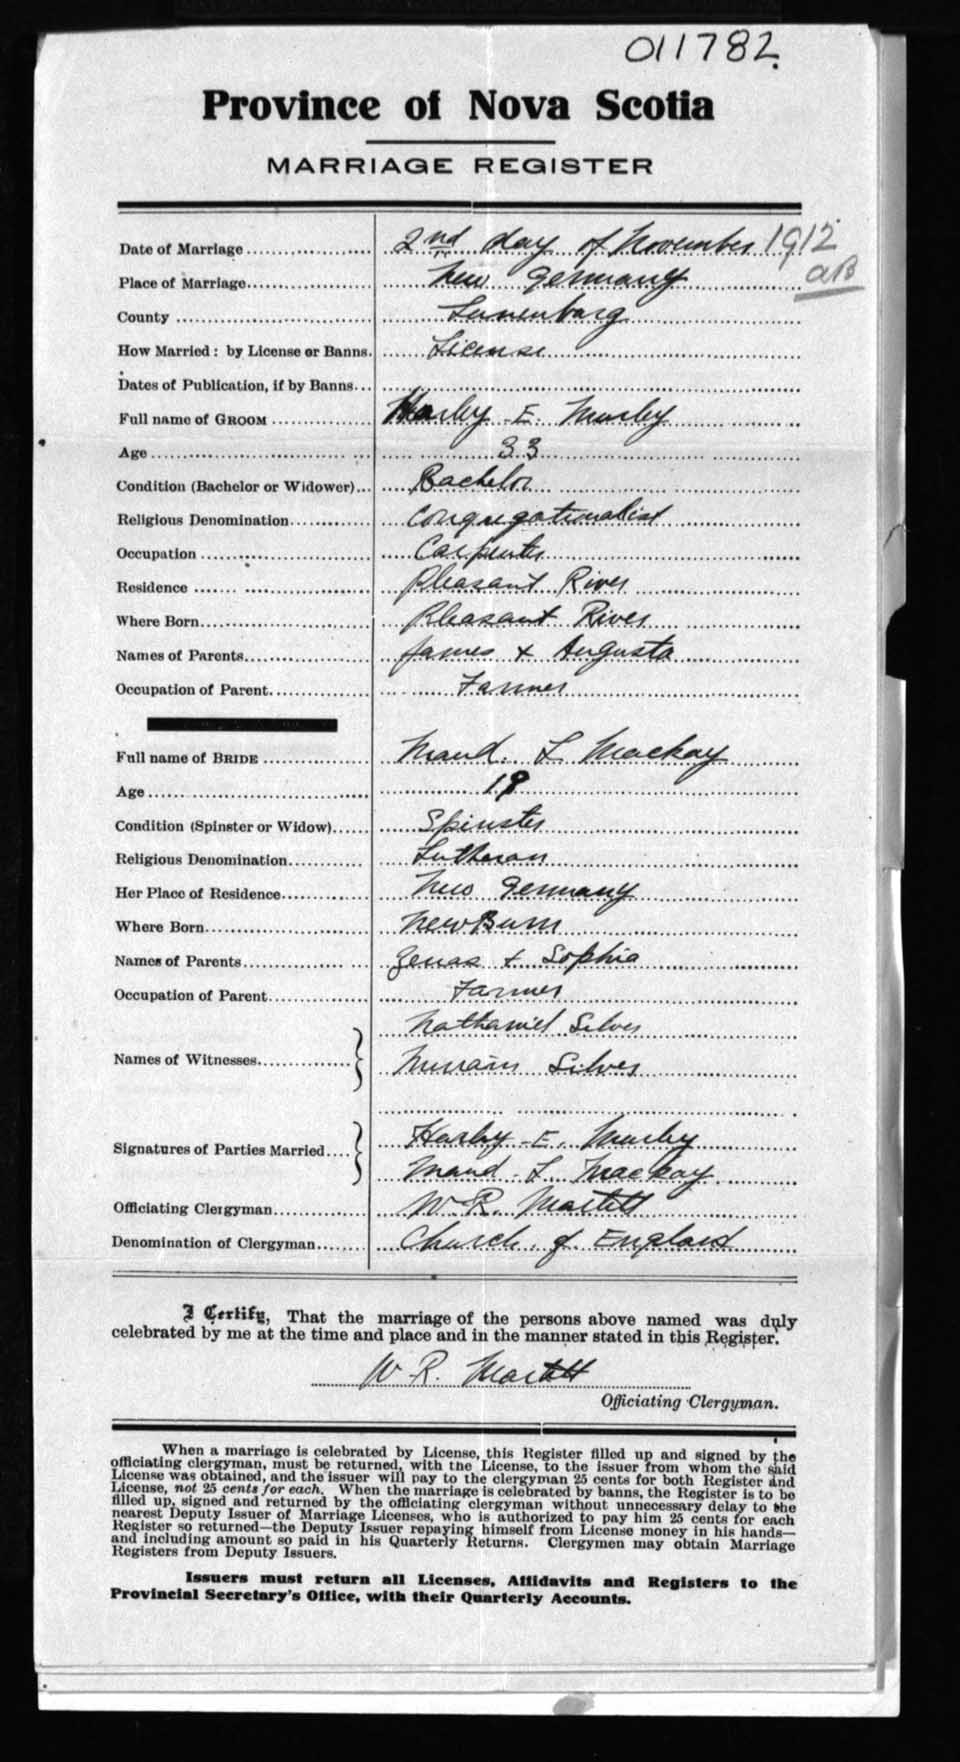 011782
Province of Nova Scotia
MARRIAGE REGISTER
Date of Marriage 2nd day of November 1912
aB
Place of Marriage New Germany
County Lunenburg
How Married: by License or Banns. License
Dates of Publication, if by Banns
Full name of GROOM Harley E. Murley
Age 33
Condition (Bachelor or Widower) Bachelor
Religious Denomination Congregationalist
Occupation Carpenter
Residence Pleasant River
Where Born Pleasant River
Names of Parents James & Augusta
Occupation of Parent Farmer
Full name of BRIDE Maud. L Mackay
Age 19
Condition (Spinster or Widow) Spinster
Religious Denomination Lutheran
Her Place of Residence New Germany
Where Born New Burn
Names of Parents Zenas & Sophia
Occupation of Parent Farmer
Nathaniel Silver
Names of Witnesses Silver
Harley E. Murley
Signatures of Parties Married
Maud L Mackay
Officiating Clergyman W. R. Martell
Denomination of Clergyman Church of England
I Certify, That the marriage of the persons above named was duly
celebrated by me at the time and place and in the manner stated in this Register.
W R. Martell
Officiating Clergyman.
When a marriage is celebrated by License, this Register filled up and signed by the
officiating clergyman, must be returned, with the License, to the issuer from whom the said
License was obtained, and the issuer will pay to the clergyman 25 cents for both Register and
License, not 25 cents for each. When the marriage is celebrated by banns, the Register is to be
filled up, signed and returned by the officiating clergyman without unnecessary delay to the
nearest Deputy Issuer of Marriage Licenses, who is authorized to pay him 25 cents for each
Register so returned—the Deputy Issuer repaying himself from License money in his hands—
and including amount so paid in his Quarterly Returns. Clergymen may obtain Marriage
Registers from Deputy Issuers.
Issuers must return all Licenses, Affidavits and Registers to the
Provincial Secretary's Office, with their Quarterly Accounts.